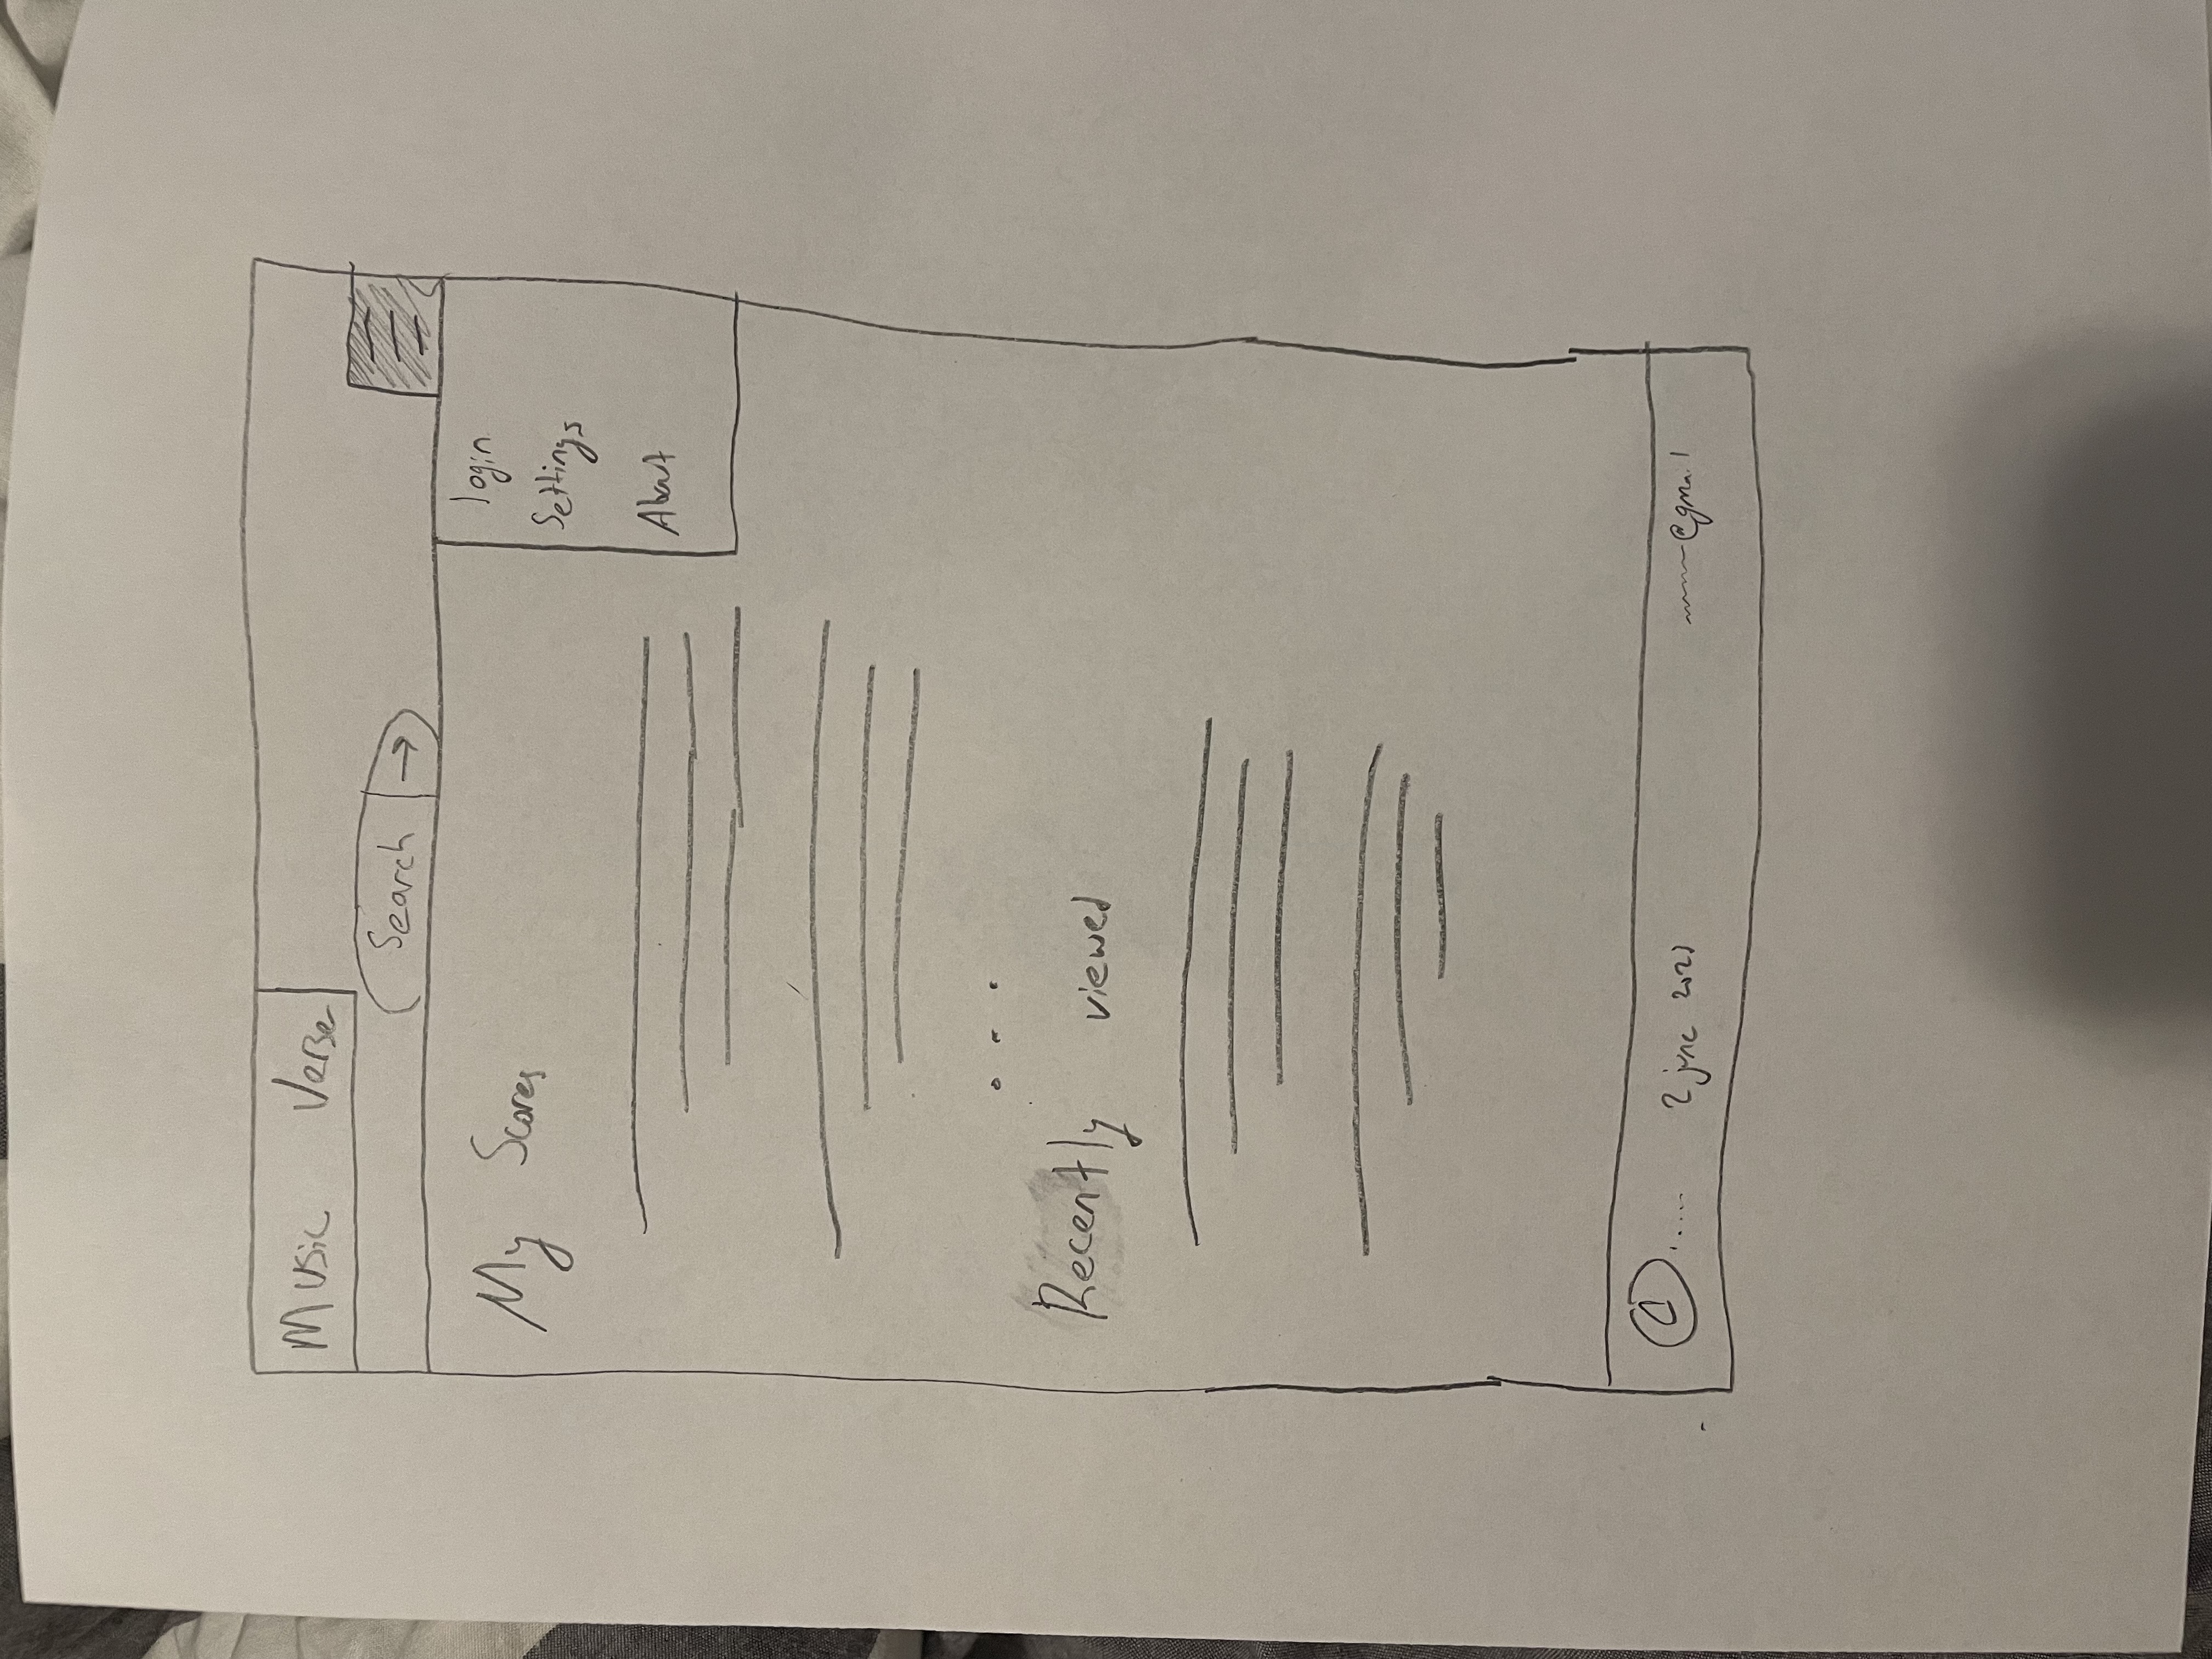 Music Verse
Search →
login
Settings
About
My Scores
...
Recently viewed
© ..... 2 june
@gmail